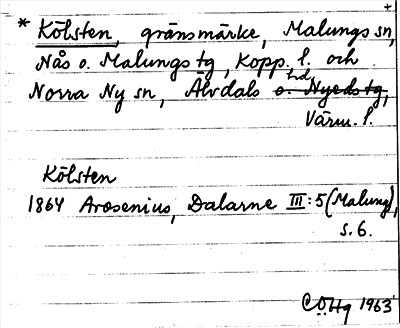 +
* Kölsten, gränsmärke, Malungs sn,
Nås o. Malungs tg, Kopp. l. och
Norra Ny sn, Älvdals hd, o. Nyeds tg,
Värm. l.
Kölsten
1864 Arosenius, Dalarne III:5 (Malung),
s. 6.
CÖHg 1963